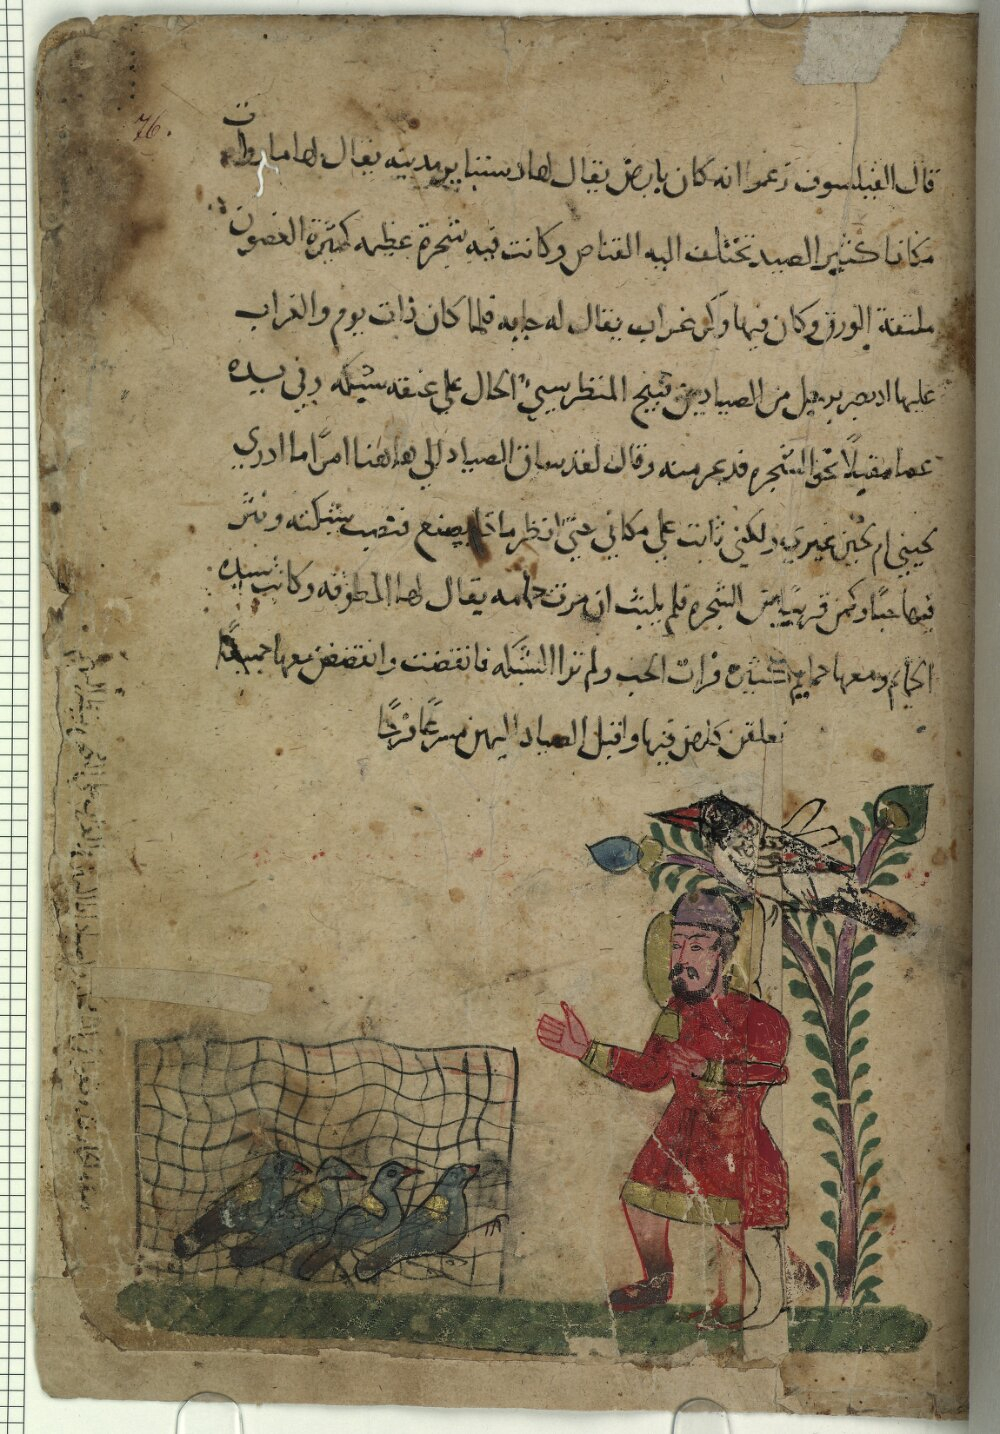 76.
قال الفيلسوف زعموا انه كان بارض يقال لها دستنبا يرمدينه يقال لها ماروات
مكانا كثير الصيد تختلف اليه القناص وكانت فيه شجرة عظيمه كثيرة الغصون
ملتفة الورق وكان فيها وكر غراب يقال له حايه فلما كان ذات يوم والغراب
عليها اذ بصر برجل من الصيادين قبيح المنظر سيئ الحال على عنقه شبكه وفي يده
عصا مقبلاً نحو الشجره فدعر منه وقال لقد ساق الصياد الى هاهنا امرًا ما ادري
لحيني ام لحين غيري ولكني ثابت على مكاني حتى انظر ماذا يصنع فنصب شبكته ونثر
فيها حبا وكمن قريبا من الشجره فلم يلبث ان مرت حمامه يقال لها المطوقه وكانت سيده
الحمام ومعها حمايم كثيره فرات الحب ولم ترا الشبكه فانقضت وانقضض معها جميعًا
تعلقن كلهن فيها واقبل الصياد اليهن مسرعًا فرحًا